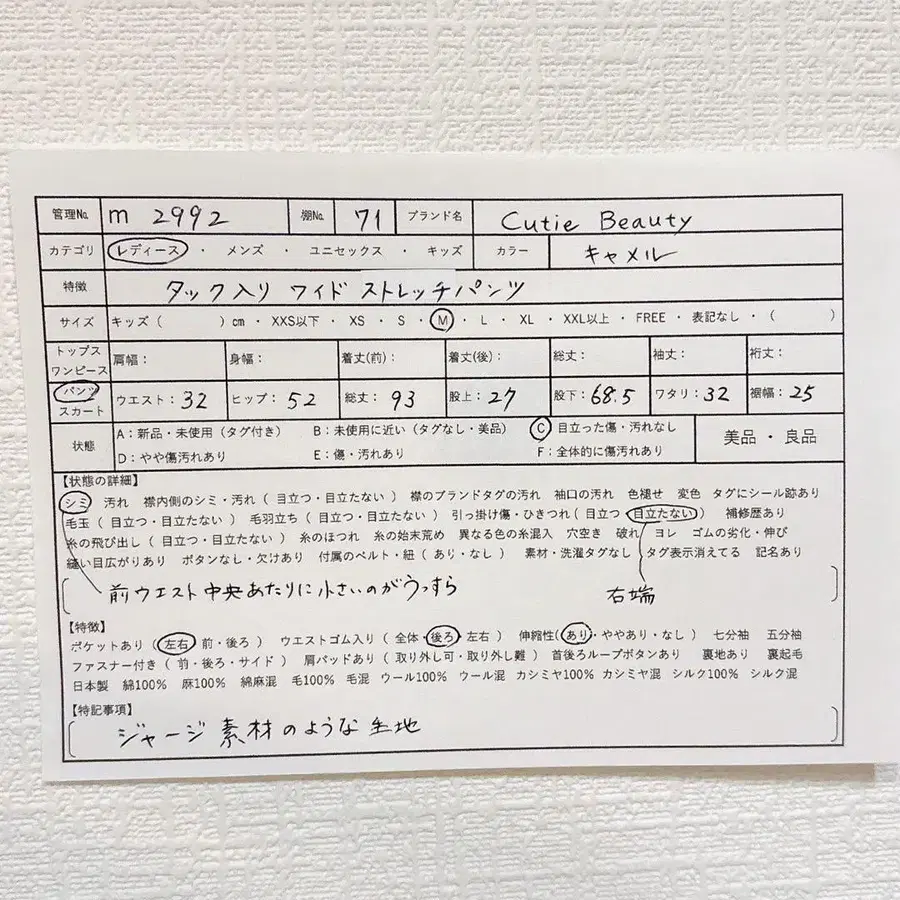 管理No. m 2992 棚No. 71 ブランド名 Cutie Beauty
カテゴリ レディース ・ メンズ ・ ユニセックス ・ キッズ カラー キャメル
特徴 タック入り ワイド ストレッチパンツ
サイズ キッズ ( ) cm ・ XXS以下 ・ XS ・ S ・ M ・ L ・ XL ・ XXL以上 ・ FREE ・ 表記なし ・ ( )
トップス ワンピース 肩幅: 身幅: 着丈(前): 着丈(後): 総丈: 袖丈: 裄丈:
パンツ スカート ウエスト: 32 ヒップ: 52 総丈: 93 股上: 27 股下: 68.5 ワタリ: 32 裾幅: 25
状態 A:新品・未使用(タグ付き) B:未使用に近い(タグなし・美品) C 目立った傷・汚れなし 美品 ・ 良品
D:やや傷汚れあり E:傷・汚れあり F:全体的に傷汚れあり
【状態の詳細】
シミ 汚れ 襟内側のシミ・汚れ ( 目立つ・目立たない ) 襟のブランドタグの汚れ 袖口の汚れ 色褪せ 変色 タグにシール跡あり
毛玉 ( 目立つ・目立たない ) 毛羽立ち ( 目立つ・目立たない ) 引っ掛け傷・ひきつれ ( 目立つ・目立たない ) 補修歴あり
糸の飛び出し ( 目立つ・目立たない ) 糸のほつれ 糸の始末荒め 異なる色の糸混入 穴空き 破れ ヨレ ゴムの劣化・伸び
縫い目広がりあり ボタンなし・欠けあり 付属のベルト・紐 ( あり・なし ) 素材・洗濯タグなし タグ表示消えてる 記名あり
前ウエスト中央あたりに小さいのがうっすら 右端
【特徴】
ポケットあり ( 左右 前・後ろ ) ウエストゴム入り ( 全体・後ろ・左右 ) 伸縮性(あり・ややあり・なし ) 七分袖 五分袖
ファスナー付き ( 前・後ろ・サイド ) 肩パッドあり ( 取り外し可・取り外し難 ) 首後ろループボタンあり 裏地あり 裏起毛
日本製 綿100% 麻100% 綿麻混 毛100% 毛混 ウール100% ウール混 カシミヤ100% カシミヤ混 シルク100% シルク混
【特記事項】
ジャージ素材のような生地